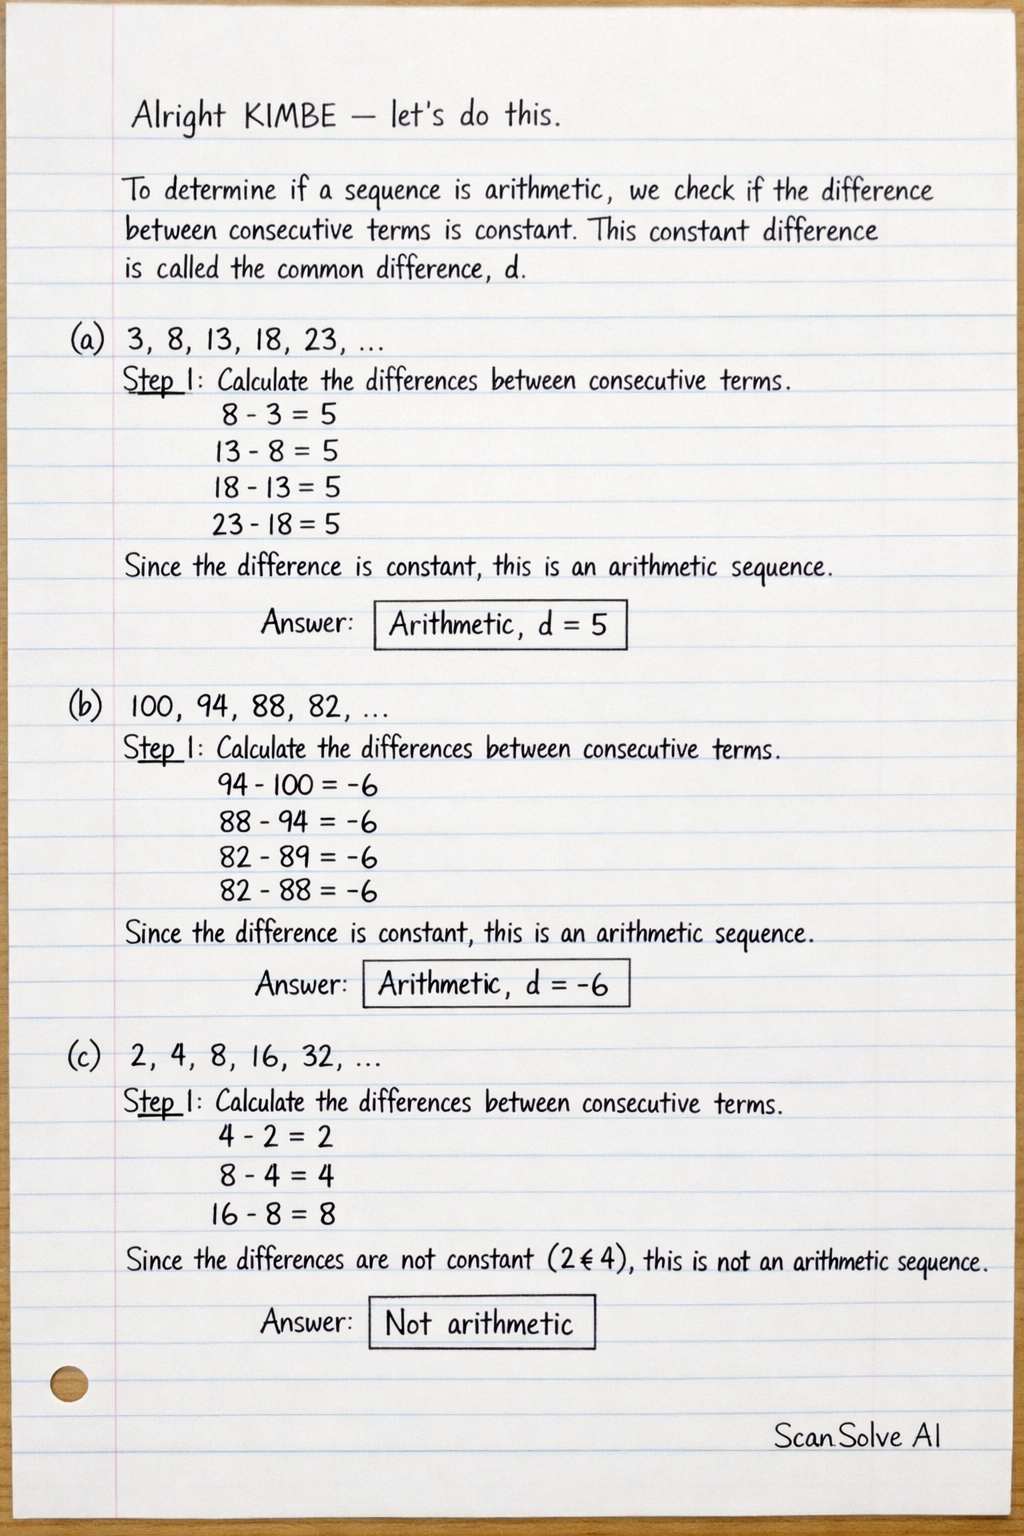 Alright KIMBE — let's do this.
To determine if a sequence is arithmetic, we check if the difference
between consecutive terms is constant. This constant difference
is called the common difference, d.
(a) 3, 8, 13, 18, 23, ...
Step 1: Calculate the differences between consecutive terms.
8 - 3 = 5
13 - 8 = 5
18 - 13 = 5
23 - 18 = 5
Since the difference is constant, this is an arithmetic sequence.
Answer: Arithmetic, d = 5
(b) 100, 94, 88, 82, ...
Step 1: Calculate the differences between consecutive terms.
94 - 100 = -6
88 - 94 = -6
82 - 89 = -6
82 - 88 = -6
Since the difference is constant, this is an arithmetic sequence.
Answer: Arithmetic, d = -6
(c) 2, 4, 8, 16, 32, ...
Step 1: Calculate the differences between consecutive terms.
4 - 2 = 2
8 - 4 = 4
16 - 8 = 8
Since the differences are not constant (2 € 4), this is not an arithmetic sequence.
Answer: Not arithmetic
ScanSolve AI